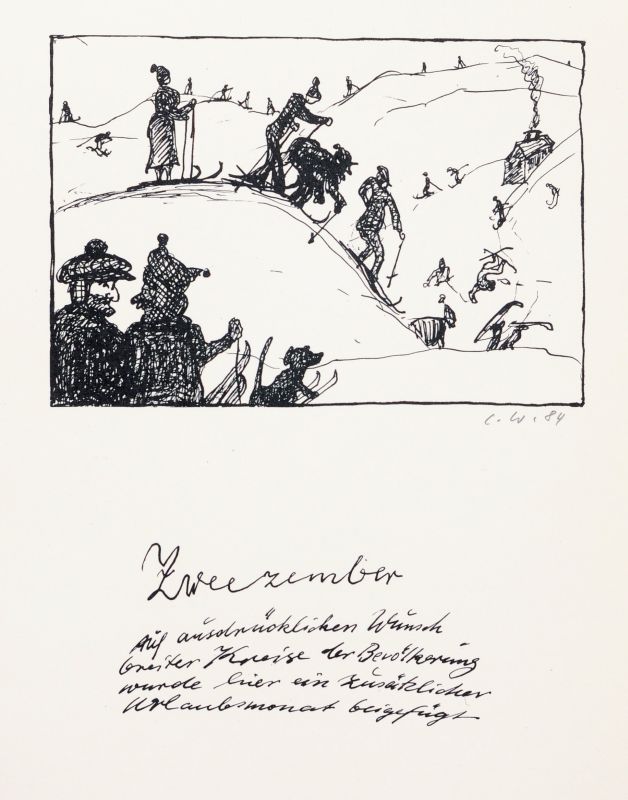 C.W.84
Zweezember
Auf ausdrücklichen Wunsch
breiter Kreise der Bevölkerung
wurde hier ein zusätzlicher
Urlaubsmonat beigefügt